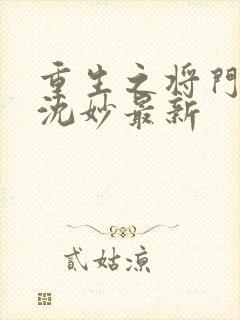 重生之将門
沈妙最新
貳姑凉